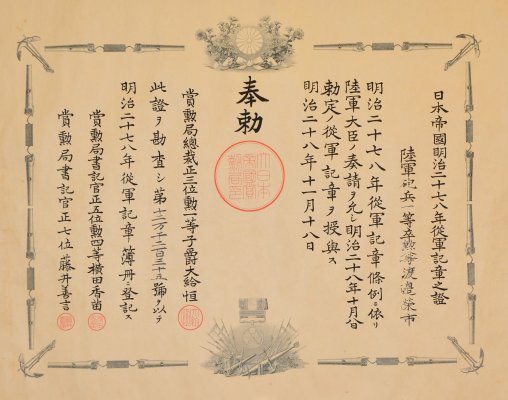 日本帝國明治二十七八年從軍記章之證
陸軍砲兵一等卒勲等渡邉榮市
明治二十七八年從軍記章條例ニ依リ
陸軍大臣ノ奏請ヲ允シ明治二十八年十月八日
勅定ノ從軍記章ヲ授與ス
明治二十八年十一月十八日
奉勅
賞勲局總裁正三位勲一等子爵大給恒
此證ヲ勘査シ第十二万千二百三十五號ヲ以テ
明治二十七八年從軍記章簿册ニ登記ス
賞勲局書記官正五位勲四等横田香苗
賞勲局書記官正七位藤井善言